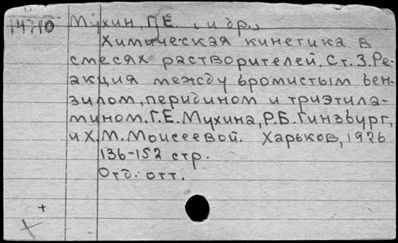 14710 Мухин, Г.Е., и др.,
Химическая кинетика в
смесях растворителей. Ст. 3. Ре-
акция между бромистым бен-
зилом, перидином и триэтила-
мином. Г.Е. Мухина, Р.Б. Гинзбург,
и Х.М. Моисеевой. Харьков, 1926
136-152 стр.
Отд. отт.